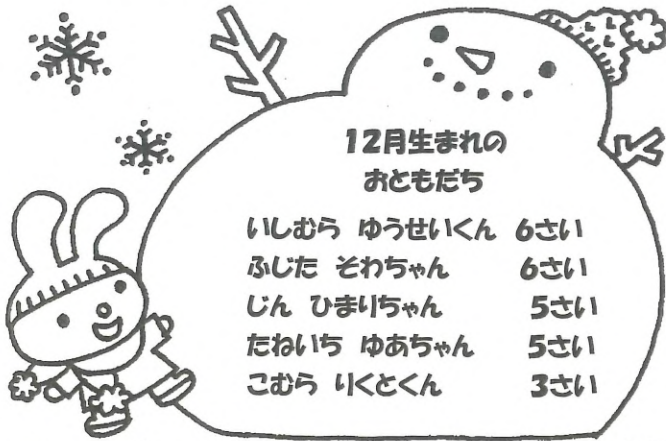 12月生まれの
おともだち
いしむら ゆうせいくん 6さい
ふじた そわちゃん 6さい
じん ひまりちゃん 5さい
たねいち ゆあちゃん 5さい
こむら りくとくん 3さい